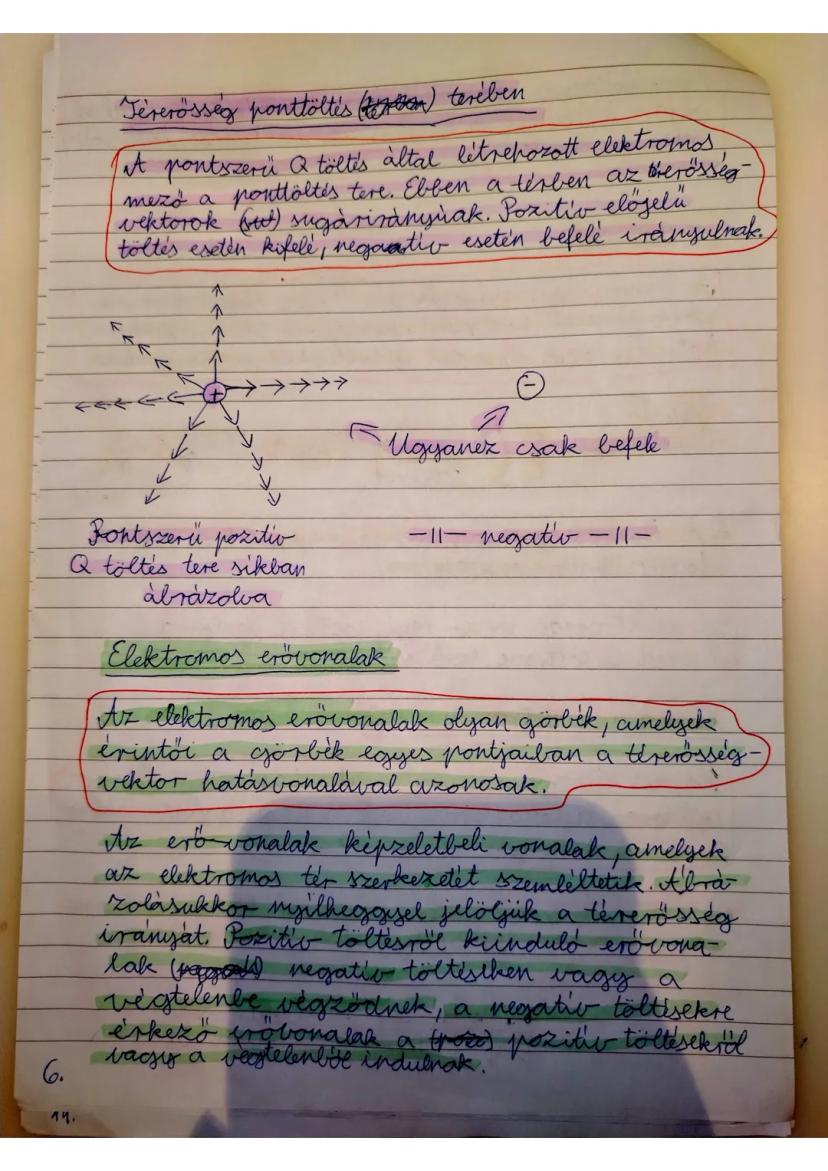 Térerősség ponttöltés terében
A pontszerű Q töltés által létrehozott elektromos
mező a ponttöltés tere. Ebben a térben az térerősség-
vektorok sugárirányúak. Pozitív előjelű
töltés esetén kifelé, negatív esetén befelé irányulnak.
+
−
Ugyanez csak befelé
Pontszerű pozitív
Q töltés tere síkban
ábrázolva
-||- negatív -||-
Elektromos erővonalak
Az elektromos erővonalak olyan görbék, amelyek
érintői a görbék egyes pontjaiban a térerősség-
vektor hatásvonalával azonosak.
Az erő-vonalak képzeletbeli vonalak, amelyek
az elektromos tér szerkezetét szemléltetik. Ábrá-
zolásukkor nyílheggyel jelöljük a térerősség
irányát. Pozitív töltésről kiinduló erővona-
lak negatív töltéseken vagy a
végtelenbe végződnek, a negatív töltésekre
érkező erővonalak a pozitív töltésekről
vagy a végtelenből indulnak.
6.
14.